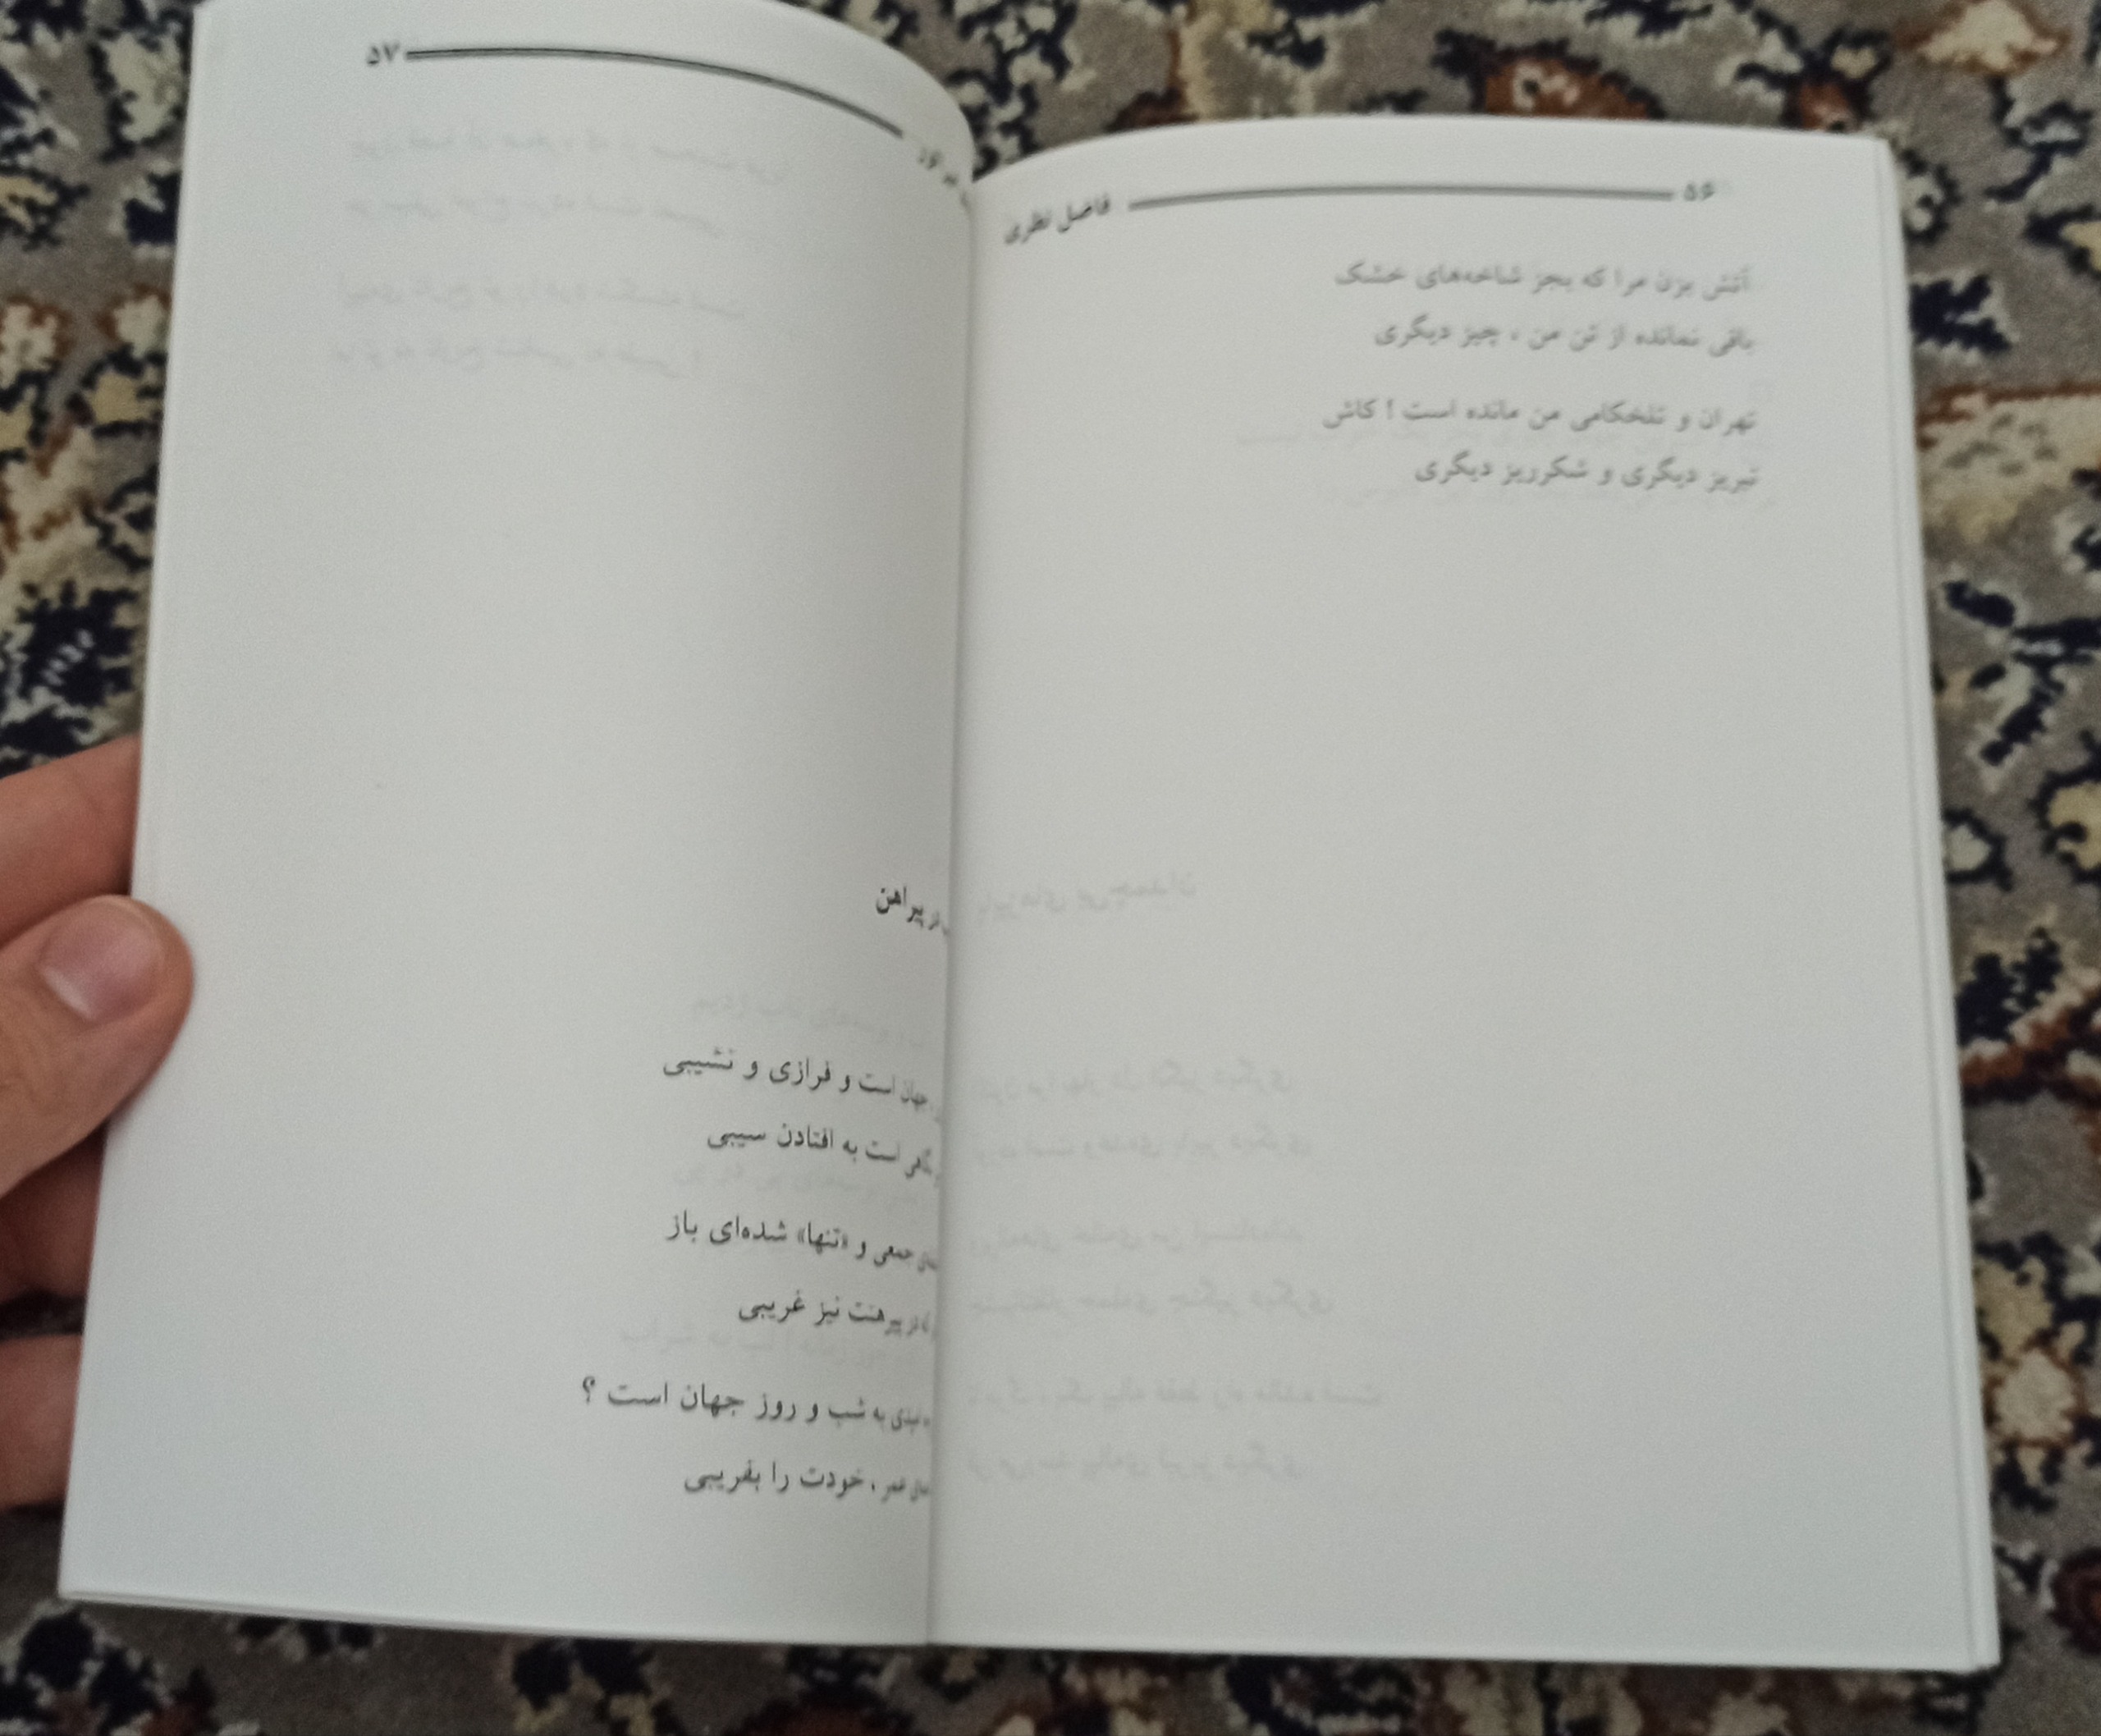 ۵۶
فاضل نظری
آتش بزن مرا که بجز شاخه‌های خشک
باقی نمانده از تن من ، چیز دیگری
تهران و تلخکامی من مانده است ! کاش
تبریز دیگری و شکرریز دیگری
۵۷
پیراهن
جهان است و فرازی و نشیبی
است به افتادن سیبی
جمعی و «تنها» شده‌ای باز
پیرهنت نیز غریبی
به شب و روز جهان است ؟
عمر ، خودت را بفریبی